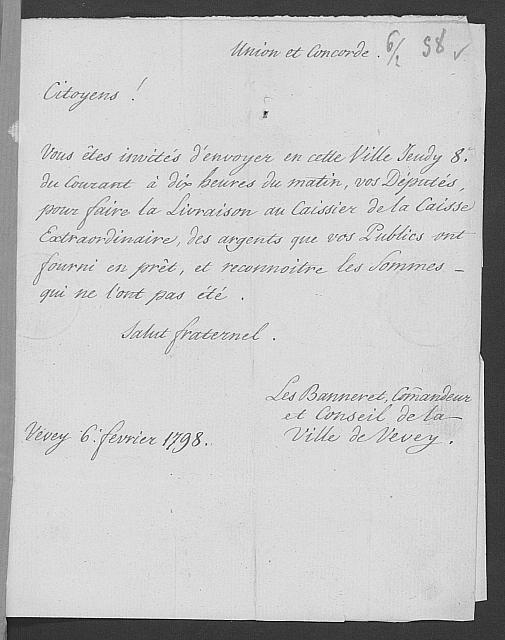 Union et Concorde. 6/2 98
Citoyens !
Vous êtes invités d'envoyer en cette Ville Jeudy 8.
du Courant à dix heures du matin, vos Députés,
pour faire la Livraison au Caissier de la Caisse
Extraordinaire, des argents que vos Publics ont
fourni en prêt, et reconnoitre les Sommes
qui ne l'ont pas été.
Salut fraternel.
Les Banneret, Comandeur
et Conseil de la
Ville de Vevey.
Vevey 6. février 1798.